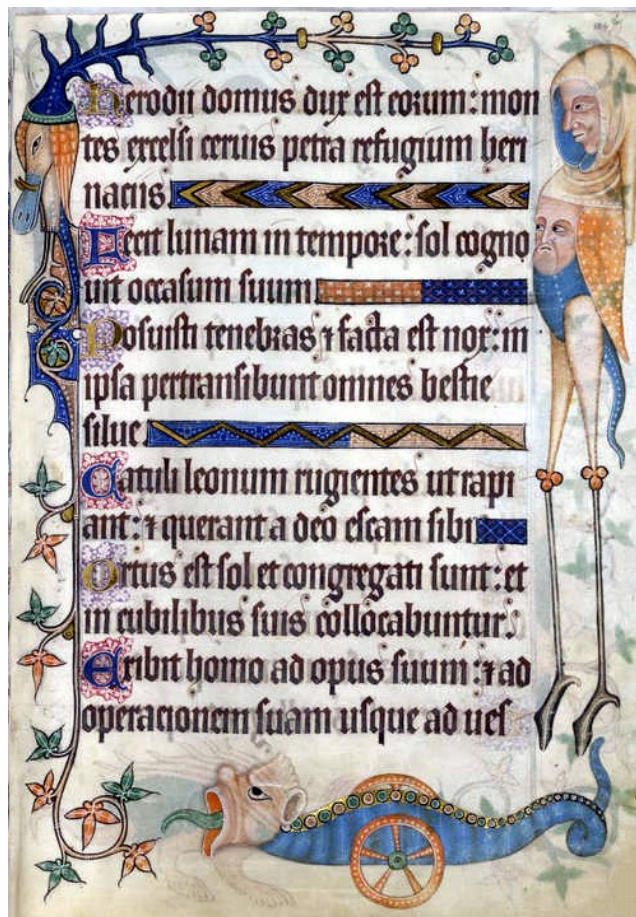 herodii domus dux est eorum: mon
tes excelsi ceruis petra refugium heri
naciis
Fecit lunam in tempore: sol cogno
uit occasum suum
Posuisti tenebras ⁊ facta est nox: in
ipsa pertransibunt omnes bestie
silue
Catuli leonum rugientes ut rapi
ant: ⁊ querant a deo escam sibi
Ortus est sol et congregati sunt: et
in cubilibus suis collocabuntur.
Exibit homo ad opus suum: ⁊ ad
operacionem suam usque ad ues